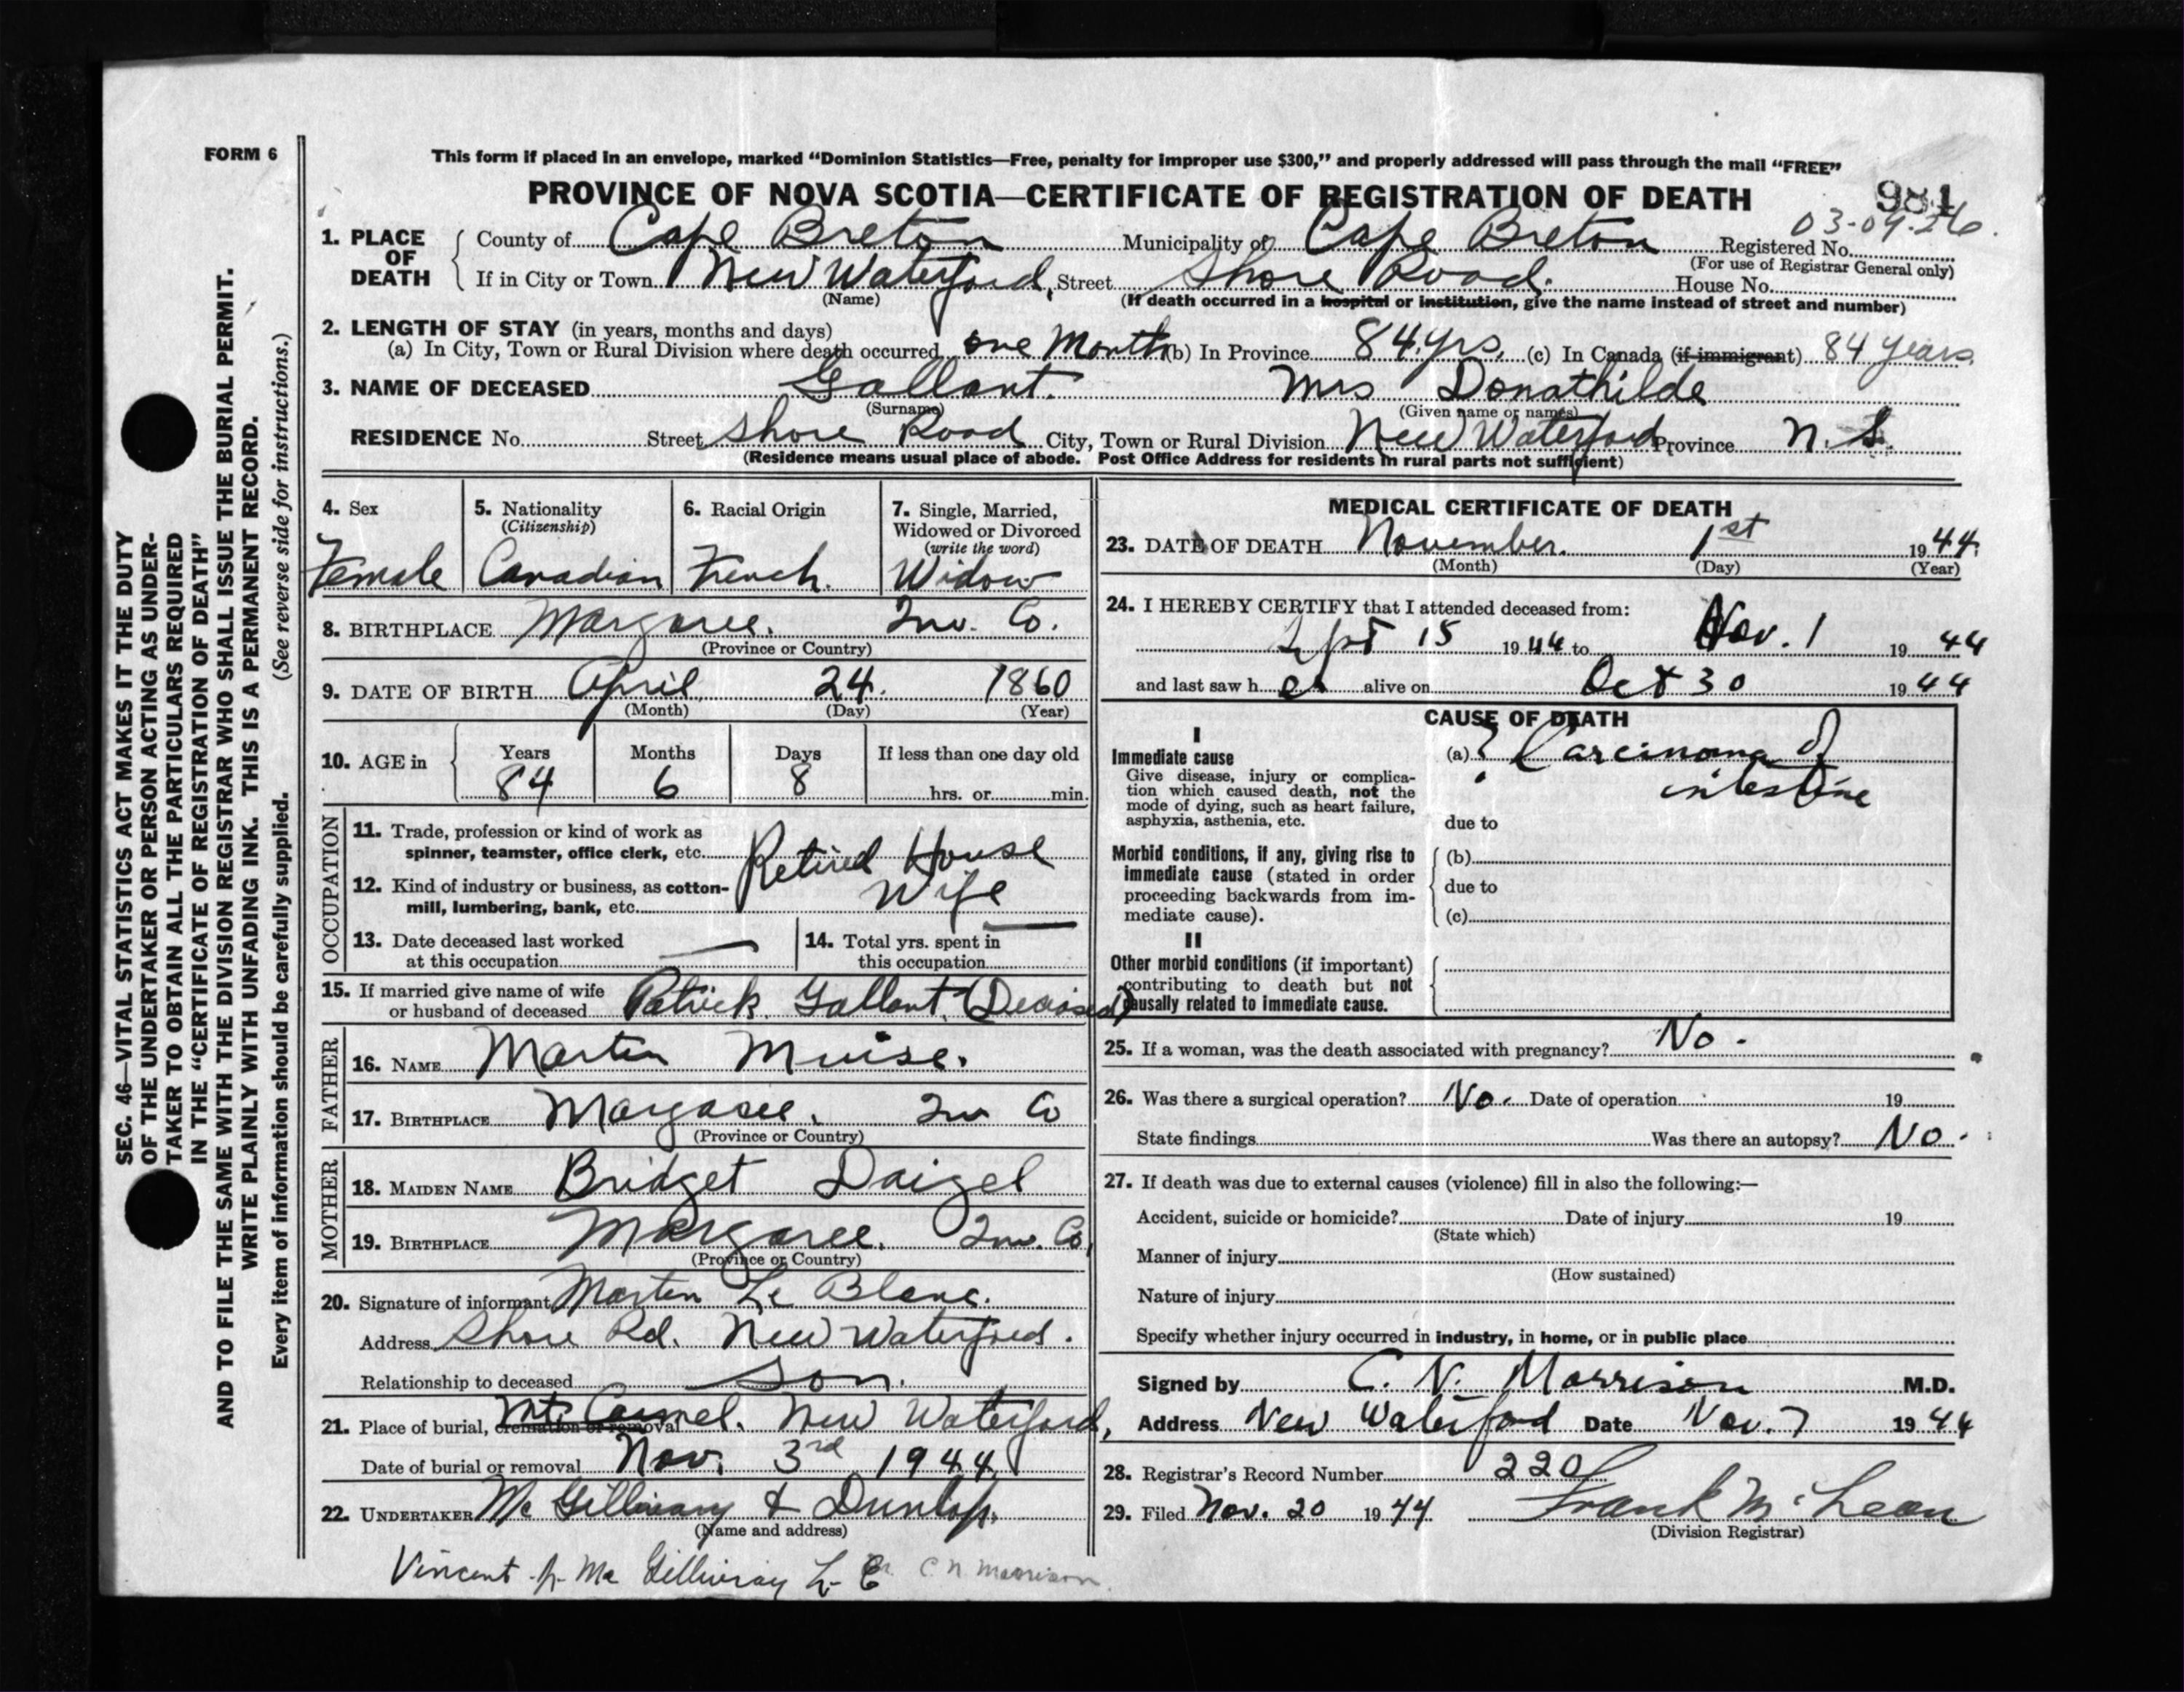 FORM 6
This form if placed in an envelope, marked "Dominion Statistics—Free, penalty for improper use $300," and properly addressed will pass through the mail "FREE"
PROVINCE OF NOVA SCOTIA—CERTIFICATE OF REGISTRATION OF DEATH
981
03-09-26.
1. PLACE OF DEATH County of Cape Breton Municipality of Cape Breton Registered No.
(For use of Registrar General only)
If in City or Town New Waterford, Street Shore Road. House No.
(Name) (If death occurred in a hospital or institution, give the name instead of street and number)
2. LENGTH OF STAY (in years, months and days)
(a) In City, Town or Rural Division where death occurred one Month (b) In Province 84 yrs. (c) In Canada (if immigrant) 84 years.
3. NAME OF DECEASED Gallant. Mrs Donathilde
(Surname) (Given name or names)
RESIDENCE No. Street Shore Road City, Town or Rural Division New Waterford Province N. S.
(Residence means usual place of abode. Post Office Address for residents in rural parts not sufficient)
4. Sex
Female
5. Nationality
(Citizenship)
Canadian
6. Racial Origin
French.
7. Single, Married,
Widowed or Divorced
(write the word)
Widow
8. BIRTHPLACE Margaree. Inv. Co.
(Province or Country)
9. DATE OF BIRTH April 24. 1860
(Month) (Day) (Year)
10. AGE in Years Months Days If less than one day old
84 6 8 hrs. or min.
OCCUPATION
11. Trade, profession or kind of work as
spinner, teamster, office clerk, etc. Retired House
12. Kind of industry or business, as cotton-
mill, lumbering, bank, etc. Wife
13. Date deceased last worked
at this occupation —
14. Total yrs. spent in
this occupation —
15. If married give name of wife
or husband of deceased Patrick Gallant. (Deceased)
FATHER
16. NAME Martin Muise.
17. BIRTHPLACE Margaree. Inv Co
(Province or Country)
MOTHER
18. MAIDEN NAME Bridget Daigel
19. BIRTHPLACE Margaree. Inv. Co.
(Province or Country)
20. Signature of informant Martin Le Blanc.
Address Shore Rd. New Waterford.
Relationship to deceased Son.
21. Place of burial, cremation or removal Mt. Carmel. New Waterford,
Date of burial or removal Nov. 3rd 1944
22. UNDERTAKER Mc Gillivary & Dunlop.
(Name and address)
Vincent Mc Gillivray C N Morrison
MEDICAL CERTIFICATE OF DEATH
23. DATE OF DEATH November. 1st 1944.
(Month) (Day) (Year)
24. I HEREBY CERTIFY that I attended deceased from:
Sept 15 1944 to Nov. 1 1944
and last saw her alive on Oct 30 1944
CAUSE OF DEATH
I
Immediate cause
Give disease, injury or complica-
tion which caused death, not the
mode of dying, such as heart failure,
asphyxia, asthenia, etc.
(a) ? Carcinoma of
intestine
due to
Morbid conditions, if any, giving rise to
immediate cause (stated in order
proceeding backwards from im-
mediate cause).
(b)
due to
(c)
II
Other morbid conditions (if important)
contributing to death but not
causally related to immediate cause.
25. If a woman, was the death associated with pregnancy? No.
26. Was there a surgical operation? No. Date of operation 19
State findings Was there an autopsy? No.
27. If death was due to external causes (violence) fill in also the following:—
Accident, suicide or homicide? Date of injury 19
(State which)
Manner of injury
(How sustained)
Nature of injury
Specify whether injury occurred in industry, in home, or in public place
Signed by C. N. Morrison M.D.
Address New Waterford Date Nov. 7 1944
28. Registrar's Record Number 220
29. Filed Nov. 20 1944 Frank McLean
(Division Registrar)
SEC. 46—VITAL STATISTICS ACT MAKES IT THE DUTY
OF THE UNDERTAKER OR PERSON ACTING AS UNDER-
TAKER TO OBTAIN ALL THE PARTICULARS REQUIRED
IN THE "CERTIFICATE OF REGISTRATION OF DEATH"
AND TO FILE THE SAME WITH THE DIVISION REGISTRAR WHO SHALL ISSUE THE BURIAL PERMIT.
WRITE PLAINLY WITH UNFADING INK. THIS IS A PERMANENT RECORD.
Every item of information should be carefully supplied. (See reverse side for instructions.)